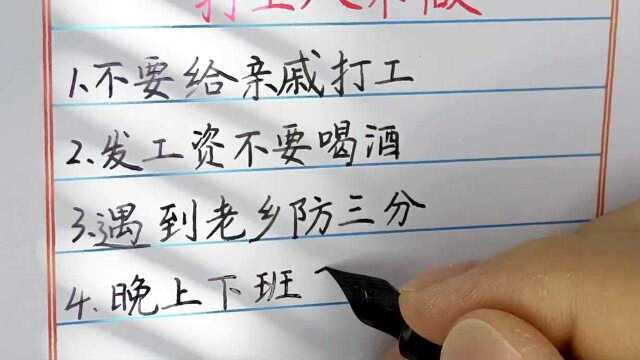 打工人不做
1.不要给亲戚打工
2.发工资不要喝酒
3.遇到老乡防三分
4.晚上下班